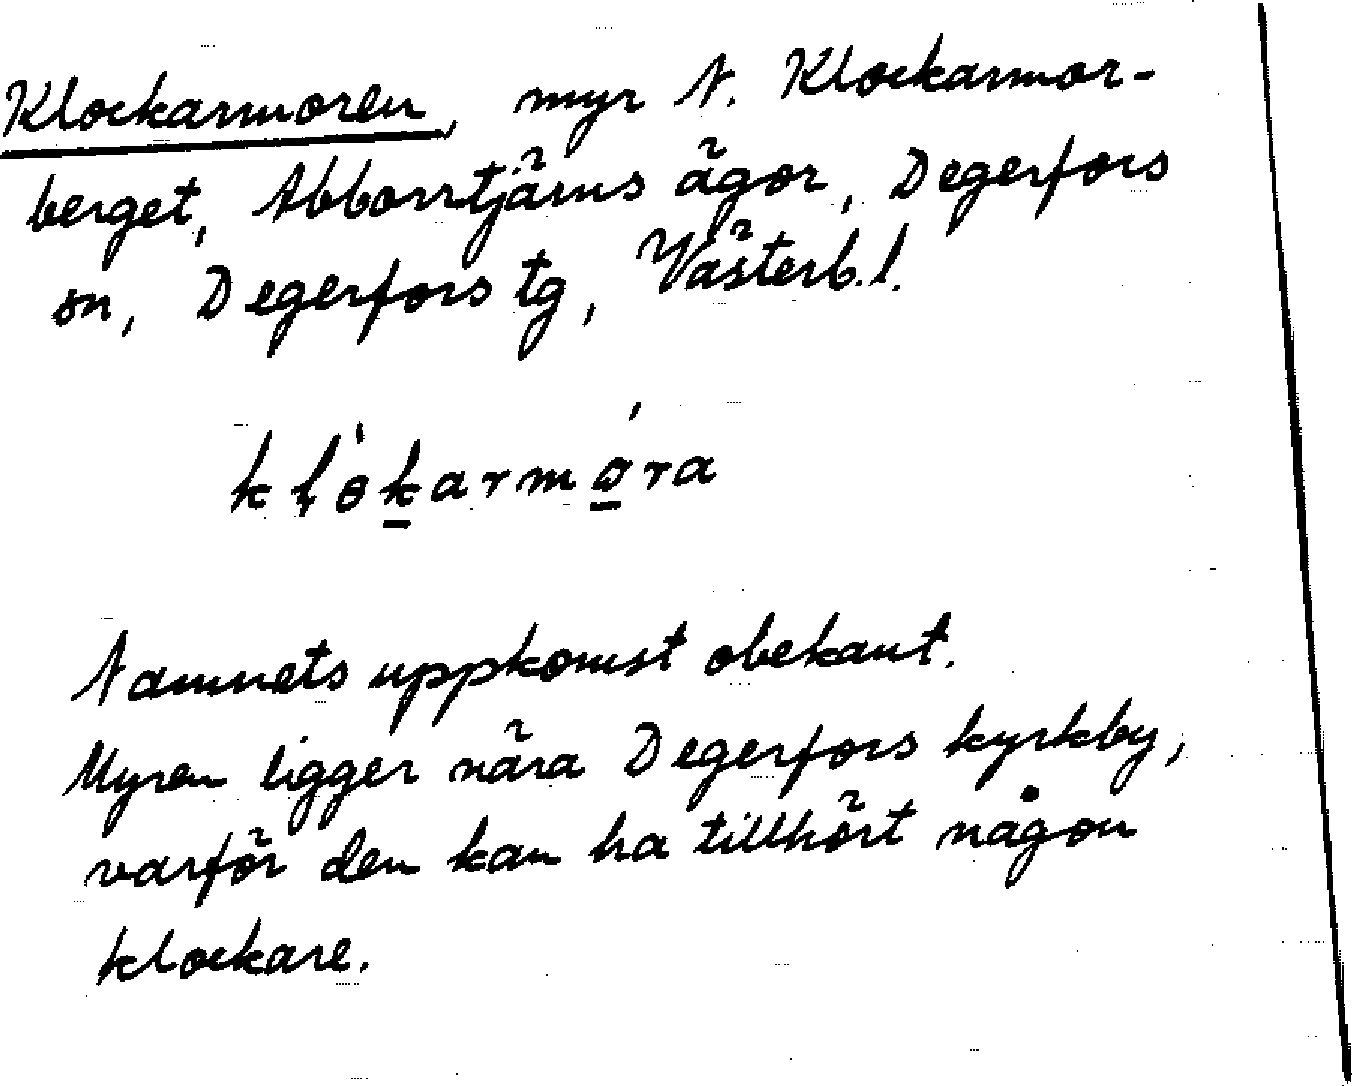 Klockarmoren, myr N. Klockarmor-
berget, Abborrtjärns ägor, Degerfors
sn, Degerfors tg, Västerb.l.
klo̍karmo̗ra
Namnets uppkomst obekant.
Myren ligger nära Degerfors kyrkby,
varför den kan ha tillhört någon
klockare.